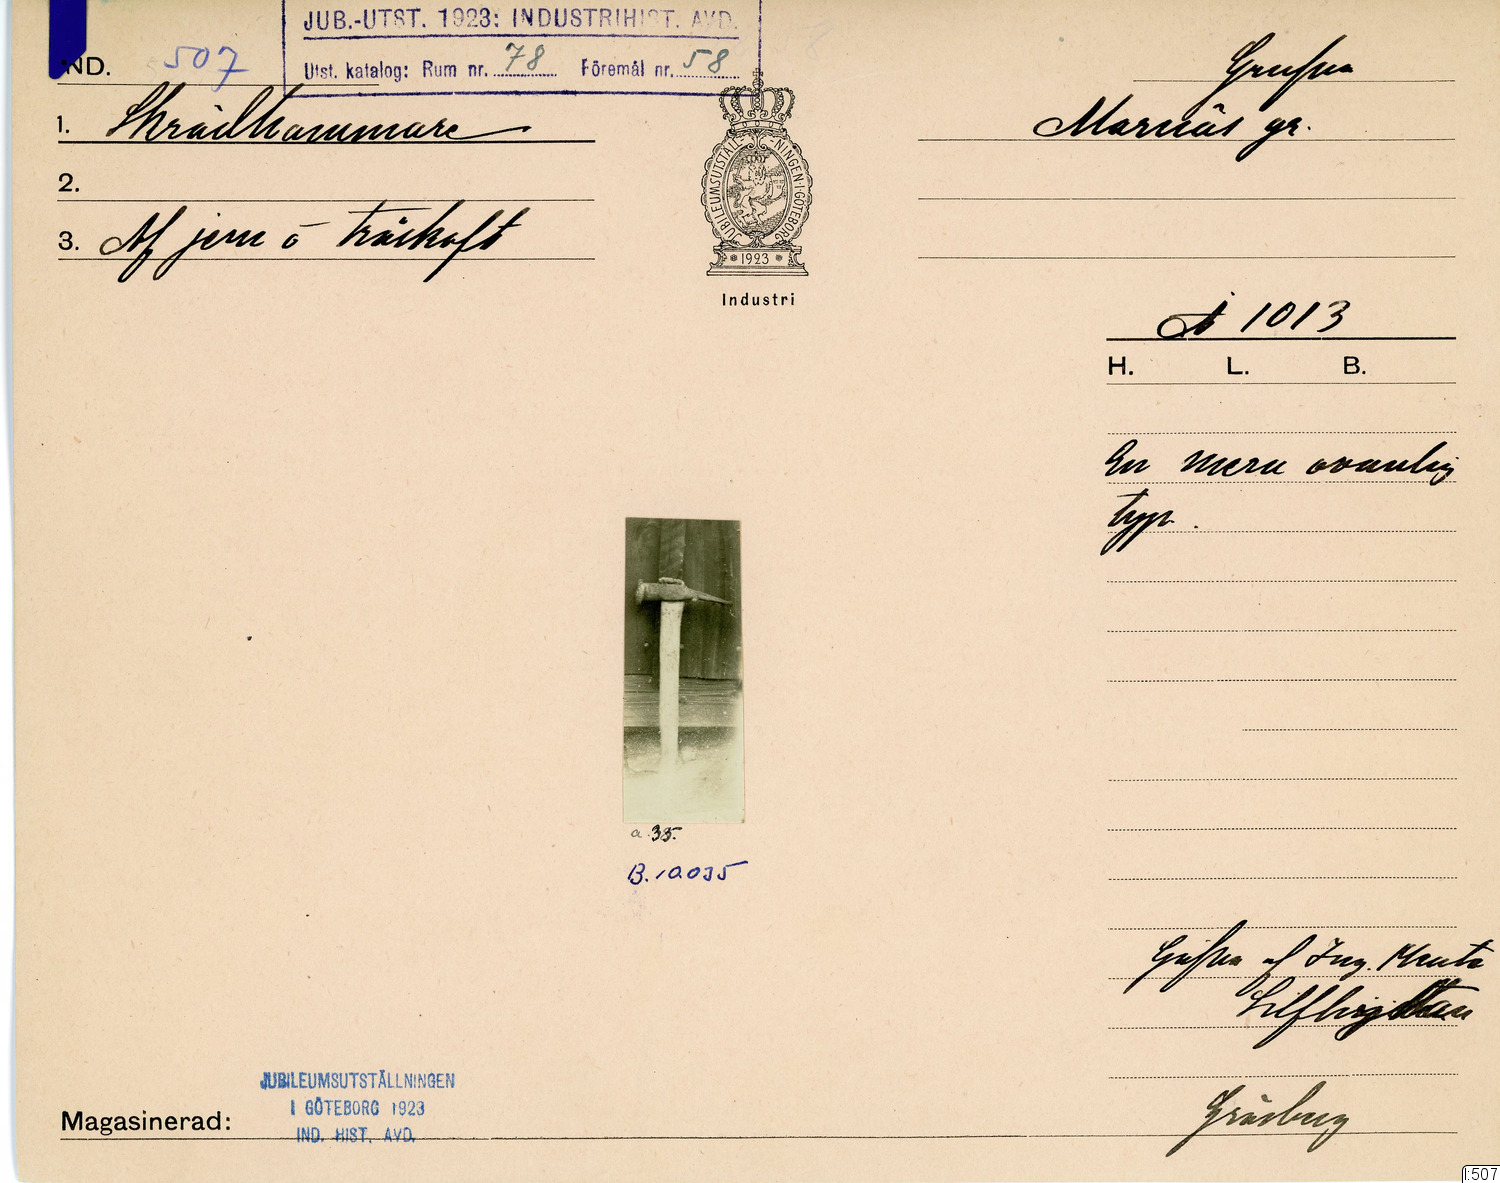 JUB.-UTST. 1923: INDUSTRIHIST. AVD.
Utst. katalog: Rum nr. 78 Föremål nr. 58
IND. 507
1. Skrädhammare
2.
3. Af jern o träskaft
JUBILEUMSUTSTÄLL-NINGEN·I·GÖTEBORG
1923
Industri
Grufva
Marnäs gr.
1013
H. L. B.
En mera ovanlig
typ.
a. 35.
B. 10035
af Ing.
Gräsberg
JUBILEUMSUTSTÄLLNINGEN
I GÖTEBORG 1923
IND. HIST. AVD.
Magasinerad:
I:507